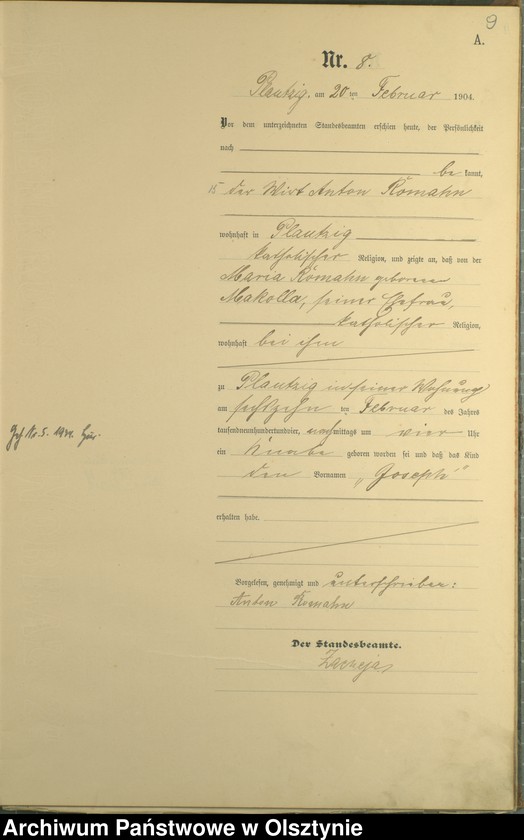 9
A.
Nr. 8.
Plautzig, am 20 ten Februar 1904.
Vor dem unterzeichneten Standesbeamten erschien heute, der Persönlichkeit
nach
be kannt,
der Wirt Anton Romahn
wohnhaft in Plautzig
katholischer Religion, und zeigte an, daß von der
Maria Romahn geborenen
Makolla, seiner Ehefrau,
katholischer Religion,
wohnhaft bei ihm
zu Plautzig in seiner Wohnung
am sechszehn ten Februar des Jahres
tausendneunhundertundvier, nachmittags um vier Uhr
ein Knabe geboren worden sei und daß das Kind
den Vornamen „Joseph"
erhalten habe.
Vorgelesen, genehmigt und unterschrieben:
Anton Romahn
Der Standesbeamte.
Archiwum Państwowe w Olsztynie